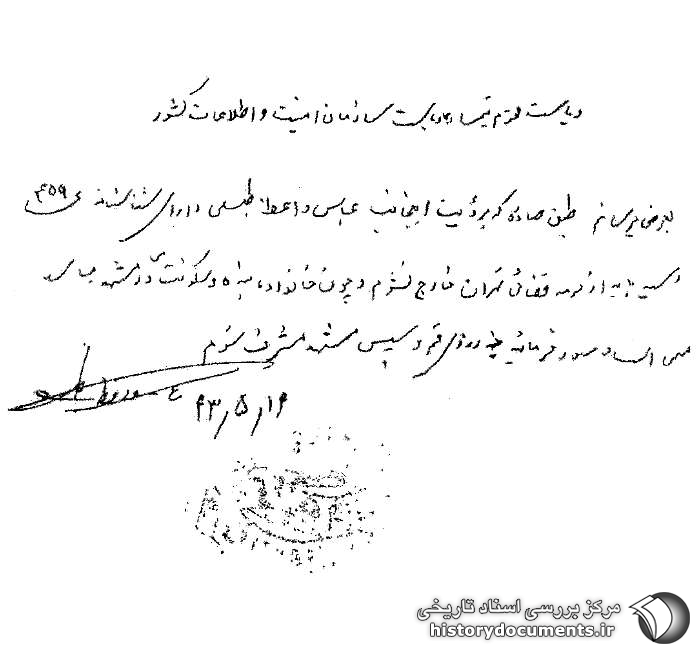 ریاست محترم تیمسار ریاست سازمان امنیت و اطلاعات کشور
بعرض میرسانم طبق صادره که برؤیت اینجانب عباس واعظ طبسی دارای شناسنامه ۴۵۹
رسید نباید از حومه قضائی تهران خارج نشوم و چون خانواده بنده و سکونت در مشهد میباشد
فرمائید چند روزی قم و سپس مشهد مشرف شوم
۴۳٫۵٫۱۴
مرکز بررسی اسناد تاریخی
historydocuments.ir